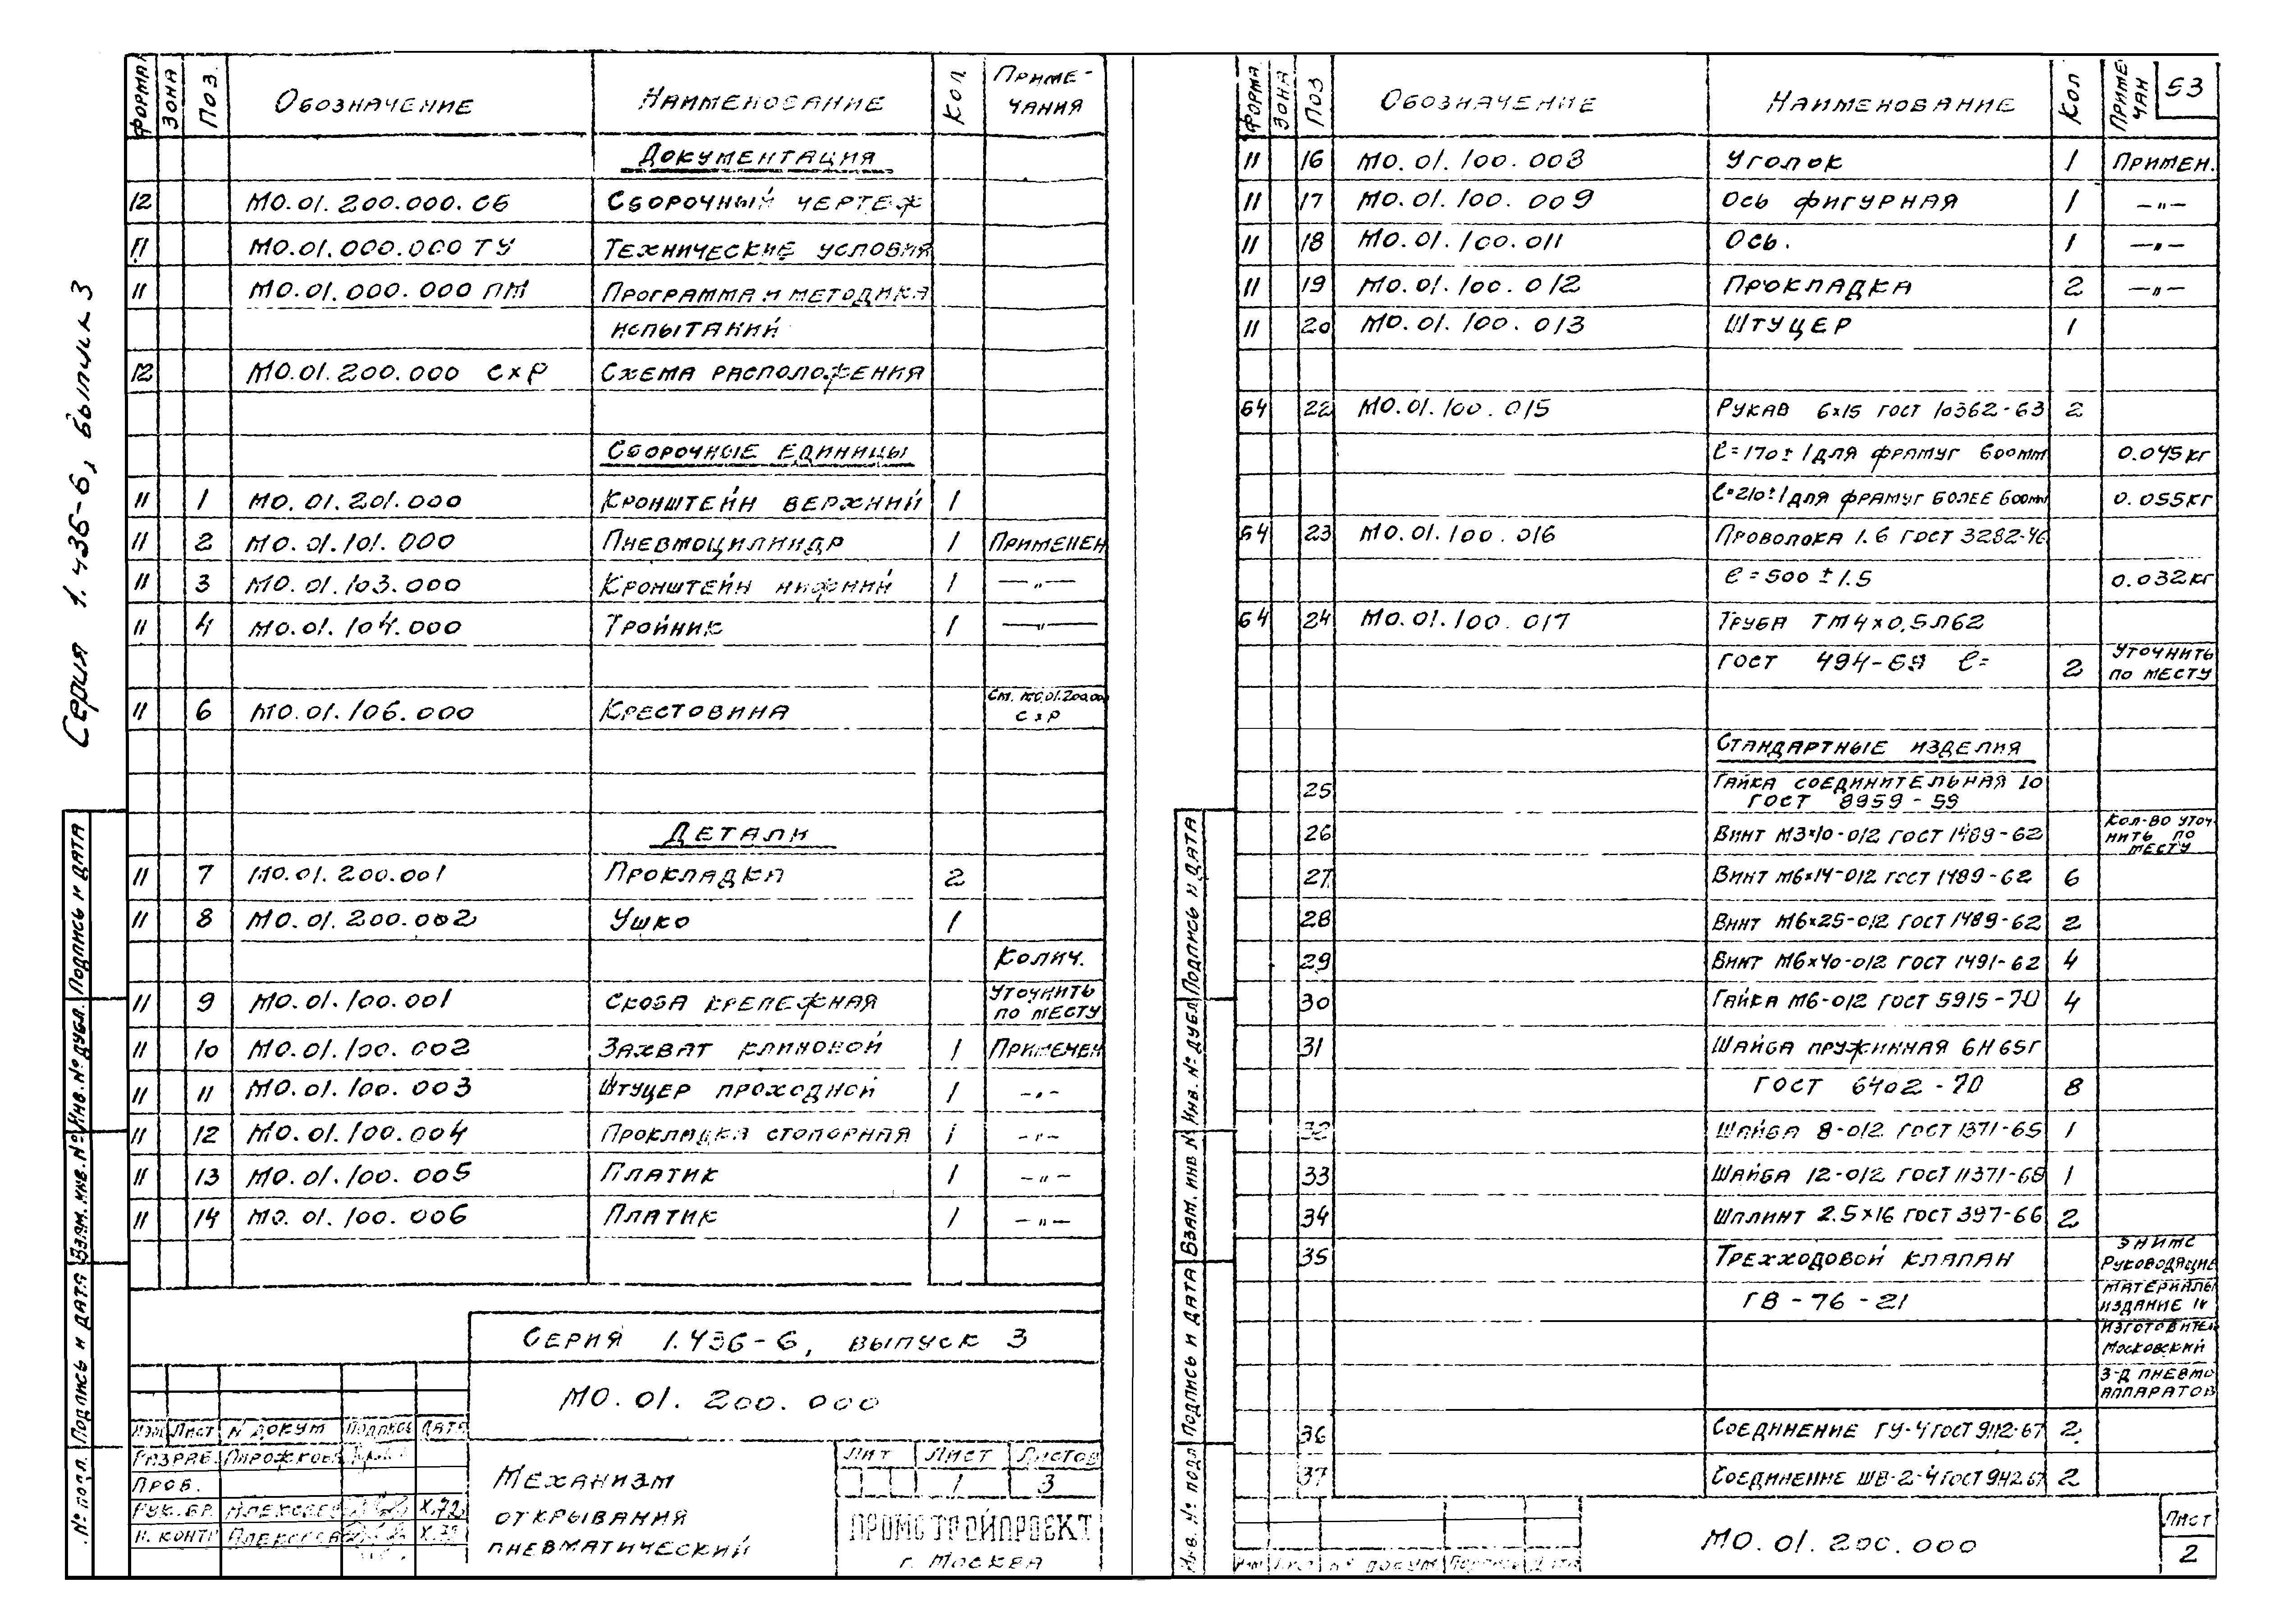 Серия 1.436-6, выпуск 3
ФОРМАТ ЗОНА ПОЗ. ОБОЗНАЧЕНИЕ НАИМЕНОВАНИЕ КОЛ ПРИМЕ-
ЧАНИЯ
ДОКУМЕНТАЦИЯ
12 МО.01.200.000.СБ СБОРОЧНЫЙ ЧЕРТЕЖ
11 МО.01.000.000 ТУ ТЕХНИЧЕСКИЕ УСЛОВИЯ
11 МО.01.000.000 ПМ ПРОГРАММА И МЕТОДИКА
ИСПЫТАНИЙ
12 МО.01.200.000 СхР СХЕМА РАСПОЛОЖЕНИЯ
СБОРОЧНЫЕ ЕДИНИЦЫ
11 1 МО.01.201.000 КРОНШТЕЙН ВЕРХНИЙ 1
11 2 МО.01.101.000 ПНЕВМОЦИЛИНДР 1 ПРИМЕНЕН
11 3 МО.01.103.000 КРОНШТЕЙН НИЖНИЙ 1 —"—
11 4 МО.01.104.000 ТРОЙНИК 1 —"—
11 6 МО.01.106.000 КРЕСТОВИНА СМ. МО.01.200.000
СхР
ДЕТАЛИ
11 7 МО.01.200.001 ПРОКЛАДКА 2
11 8 МО.01.200.002 УШКО 1
КОЛИЧ.
11 9 МО.01.100.001 СКОБА КРЕПЕЖНАЯ УТОЧНИТЬ
ПО МЕСТУ
11 10 МО.01.100.002 ЗАХВАТ КЛИНОВОЙ 1 ПРИМЕНЕН
11 11 МО.01.100.003 ШТУЦЕР ПРОХОДНОЙ 1 —"—
11 12 МО.01.100.004 ПРОКЛАДКА СТОПОРНАЯ 1 —"—
11 13 МО.01.100.005 ПЛАТИК 1 —"—
11 14 МО.01.100.006 ПЛАТИК 1 —"—
СЕРИЯ 1.436-6, ВЫПУСК 3
МО.01.200.000
ИЗМ ЛИСТ N ДОКУМ ПОДПИСЬ ДАТА
РАЗРАБ. ПИРОЖКОВА
ПРОВ.
РУК.БР. АЛЕКСЕЕВ X.72
Н. КОНТР АЛЕКСЕЕВ
МЕХАНИЗМ
ОТКРЫВАНИЯ
ПНЕВМАТИЧЕСКИЙ
ЛИТ ЛИСТ ЛИСТОВ
1 3
ПРОМСТРОЙПРОЕКТ
г. МОСКВА
№ ПОДЛ. ПОДПИСЬ И ДАТА ВЗАМ. ИНВ. № ИНВ. № ДУБЛ. ПОДПИСЬ И ДАТА
ФОРМА ЗОНА ПОЗ ОБОЗНАЧЕНИЕ НАИМЕНОВАНИЕ КОЛ ПРИМЕ
ЧАН
53
11 16 МО.01.100.008 УГОЛОК 1 ПРИМЕН.
11 17 МО.01.100.009 ОСЬ ФИГУРНАЯ 1 —"—
11 18 МО.01.100.011 ОСЬ. 1 —"—
11 19 МО.01.100.012 ПРОКЛАДКА 2 —"—
11 20 МО.01.100.013 ШТУЦЕР 1
64 22 МО.01.100.015 РУКАВ 6х15 ГОСТ 10362-63 2
ℓ=170±1 ДЛЯ ФРАМУГ 600мм 0.045кг
ℓ=210±1 ДЛЯ ФРАМУГ БОЛЕЕ 600мм 0.055кг
64 23 МО.01.100.016 ПРОВОЛОКА 1.6 ГОСТ 3282-46
ℓ=500±1.5 0.032кг
64 24 МО.01.100.017 ТРУБА ТМ4х0,5Л62
ГОСТ 494-69 ℓ= 2 УТОЧНИТЬ
ПО МЕСТУ
СТАНДАРТНЫЕ ИЗДЕЛИЯ
25 ГАЙКА СОЕДИНИТЕЛЬНАЯ 10
ГОСТ 8959-59
26 ВИНТ М3х10-012 ГОСТ 1489-62 КОЛ-ВО УТОЧ-
НИТЬ ПО
МЕСТУ
27 ВИНТ М6х14-012 ГОСТ 1489-62 6
28 ВИНТ М6х25-012 ГОСТ 1489-62 2
29 ВИНТ М6х40-012 ГОСТ 1491-62 4
30 ГАЙКА М6-012 ГОСТ 5915-70 4
31 ШАЙБА ПРУЖИННАЯ 6Н 65Г
ГОСТ 6402-70 8
32 ШАЙБА 8-012 ГОСТ 1371-65 1
33 ШАЙБА 12-012 ГОСТ 11371-68 1
34 ШПЛИНТ 2.5х16 ГОСТ 397-66 2
35 ТРЕХХОДОВОЙ КЛАПАН ЭНИМС
РУКОВОДЯЩИЕ
ГВ-76-21 МАТЕРИАЛЫ
ИЗДАНИЕ IV
ИЗГОТОВИТЕЛЬ
МОСКОВСКИЙ
З-Д ПНЕВМО
АППАРАТОВ
36 СОЕДИНЕНИЕ ГУ-4 ГОСТ 9112-67 2
37 СОЕДИНЕНИЕ ШВ-2-4 ГОСТ 942 67 2
МО.01.200.000
ЛИСТ
2
ИЗМ ЛИСТ № ДОКУМ ПОДПИСЬ ДАТА
ИНВ. № ПОДЛ ПОДПИСЬ И ДАТА ВЗАМ. ИНВ № ИНВ. № ДУБЛ ПОДПИСЬ И ДАТА